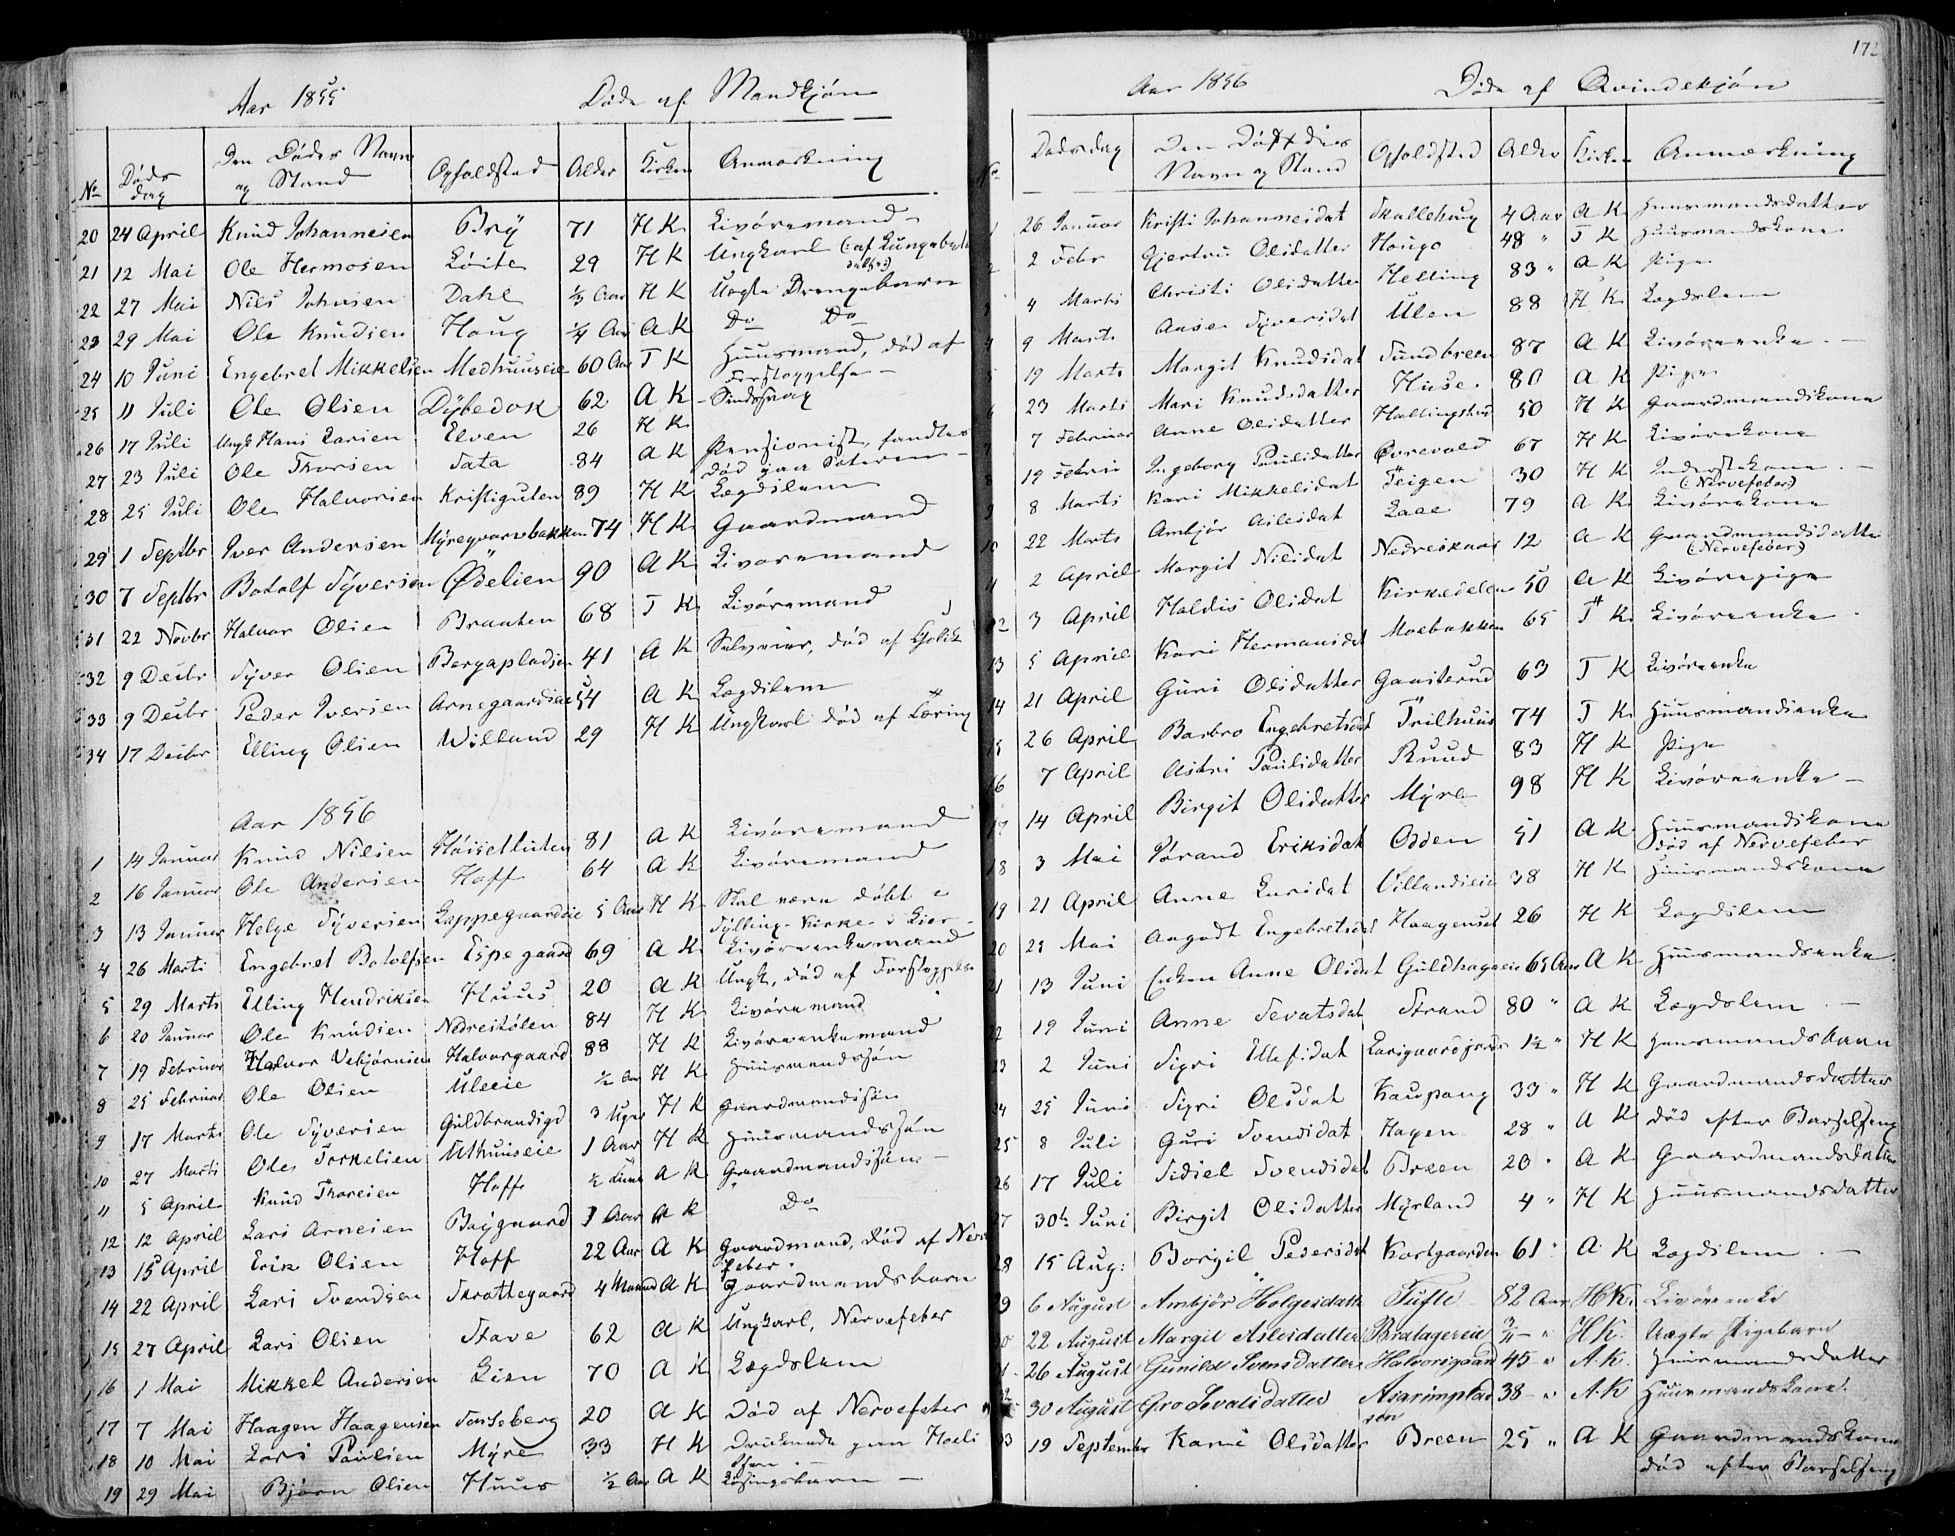 Aar 1855 Døde af Mandkjøn
No Døds dag Den Dødes Navn og Stand Opholdsted Alder Kirken Anmærkning
20 24 April Knud Johannesen Bry 71 H K Livøremand
21 12 Mai Ole Hermosen Løite 29 H K Ungkarl
22 27 Mai Nils Johnsen Dahl 1/3 Aar H K Uægte Drengebarn
23 29 Mai Ole Knudsen Houg 1/4 Aar A K Do Do
24 10 Juni Engebret Mikkelsen Medhuuseie 60 Aar T K Huusmand, død af Forstoppelse
25 11 Juli Ole Olsen Dybedok 62 A K Sindssvag
26 17 Juli Ungk Hans Larsen Elven 26 H K
27 23 Juli Ole Thorsen Tata 84 A K Pensionist, fandtes død paa Sæteren
28 25 Juli Ole Halvorsen Kristiguten 89 H K Lægdslem
29 1 Septbr Iver Andersen Myreqvarvbakken 74 H K Gaardmand
30 7 Septbr Botolf Syversen Ødelien 90 A K Livøremand
31 22 Novbr Halvor Olsen Braaten 68 T K Livøremand
32 9 Decbr Syver Olsen Bergapladsen 41 A K Selveier, død af Kolik
33 9 Decbr Peder Iversen Arnegaardseie 54 A K Lægdslem
34 17 Decbr Elling Olsen Willand 29 H K Ungkarl død af Tæring
Aar 1856
1 14 Januar Knud Nilsen Høisetluten 81 A K Livøremand
2 16 Januar Ole Andersen Hoff 64 A K Livøremand
3 13 Januar Helge Syversen Lappegaardeie 5 Aar H K Skal være døbt i Sylling Kirke i Lier
4 26 Marts Engebret Botolfsen Espegaard 69 A K Livøreenkemand
5 29 Marts Elling Hendriksen Huus 20 A K Ungk, død af Forstoppelse
6 20 Januar Ole Knudsen Nedrestølen 84 H K Livøremand
7 19 Februar Halvor Vebjørnsen Halvorgaard 88 H K Livøreenkemand
8 25 Februar Ole Olsen Uleeie 1/2 Aar H K Huusmandssøn
9 17 Marts Ole Syversen Guldbrandsgd 3 Uger H K Gaardmandssøn
10 27 Marts Ole Torkelsen Uthuuseie 1 Aar H K Huusmandssøn
11 5 April Knud Thoresen Hoff 1/2 A K Gaardmandssøn
12 12 April Lars Arnesen Baygaard 1 Aar A K Do
13 15 April Erik Olsen Hoff 22 Aar A K Gaardmand, død af Nervefeber
14 22 April Lars Svendsen Skrattegaard 4 Maaned A K Gaardmandsbarn
15 27 April Lars Olsen Stave 62 A K Ungkarl, Nervefeber
16 1 Mai Mikkel Andersen Lien 70 A K Lægdslem
17 7 Mai Haagen Haagensen Torseberg 20 A K Død af Nervefeber
18 10 Mai Lars Paulsen Myre 33 H K Druknede paa
19 29 Mai Bjørn Olsen Huus 1/2 Aar A K Losingsbarn
172
Aar 1856 Døde af Qvindekjøn
No Dødsdag Den Dødfødtes Navn og Stand Opholdsted Alder Kirken Anmærkning
1 26 Januar Kristi Johannesdat Skallehoug 4 Aar A K Huusmandsdatter
2 2 Febr Gjertru Olsdatter Hougo 48 " T K Huusmandskone
3 4 Marts Christi Olsdatter Helling 83 " A K Pige
4 9 Marts Aase Syversdat Ulen 88 H K Lægdslem
5 19 Marts Margit Knudsdat Sundbreen 87 A K Livøreenke
6 23 Marts Mari Knudsdatter Huse 80 A K Pige
7 7 Februar Anne Olsdatter Hallingstad 50 H K Gaardmandskone
8 19 Febru Ingeborg Paulsdatter Øvrevold 67 H K Livørekone
9 8 Marts Kari Mikkelsdat Teigen 30 H K Inderstekone (Nervefeber)
10 22 Marts Ambjør Aslesdat Laae 79 A K Livørekone
11 2 April Margit Nilsdat Nedreskaar 12 A K Gaardmandsdatter (Nervefeber)
12 3 April Haldis Olsdat Kirkedelen 50 A K Livørepige
13 5 April Kari Hermansdat Moebakken 65 T K Livøreenke
14 21 April Guri Olsdatter Gaasterud 63 T K Livøreenke
15 26 April Barbro Engebretsdat Trilhuus 74 T K Huusmandsenke
16 7 April Astri Paulsdatter Ruud 83 H K Pige
17 14 April Birgit Olsdatter Myre 98 H K Livøreenke
18 3 Mai Jørand Eriksdat Odden 51 A K Huusmandskone død af Nervefeber
19 21 April Anne Larsdat Villandseie 38 H K Huusmandskone
20 25 Mai Aagodt Engebretsdat Haagenset 26 H K Lægdslem
21 13 Juni Enken Anne Olsdat Guldhageneie 65 Aar A K Huusmandsenke
22 19 Juni Anne Sevatsdat Strand 80 " A K Lægdslem
23 2 Juni Sigri Ellefsdat Larsgaardjordet 1½ " H K Huusmandsbarn
24 25 Juni Sigri Olsdat Kaupang 33 " H K Gaardmandsdatter
25 8 Juli Guri Svendsdat Hagen 28 " A K Død efter Barselseng
26 17 Juli Sidsel Svendsdat Breen 20 " A K Gaardmandsdatter
27 30te Juni Birgit Olsdatter Myrland 4 " H K Huusmandsdatter
28 15 Aug: Borgil Pedersdat Kortgaarden 61 " A K Lægdslem
29 6 August Ambjør Holgesdatter Tufte 82 Aar H K. Livøreenke
30 22 August Margit Aslesdatter Bratagereie 3/4 " H K. Uægte Pigebarn
31 26 August Gunild Svensdatter Halvorsgaard 45 " A. K. Huusmandsdatter
32 30 August Gro Sevatsdatter 38 " A. K Huusmandskone
33 19 September Kari Olsdatter Breen 25 " A K Gaardmandskone død efter Barselseng